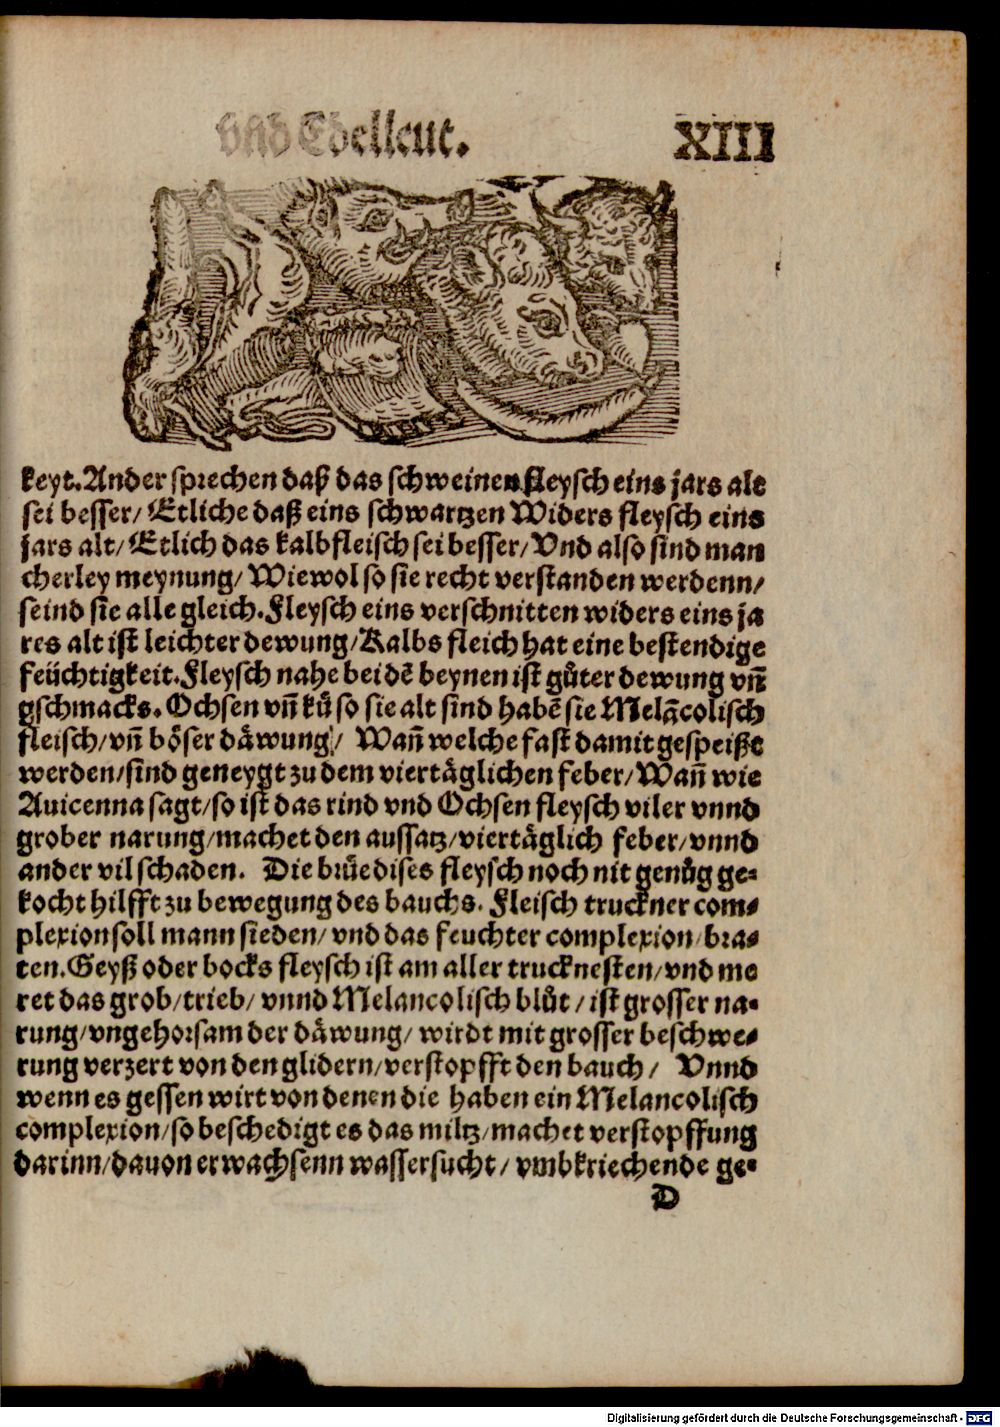 vnd Edelleut.
XIII
keyt. Ander sprechen daß das schweinen fleysch eins jars alt
sei besser/ Etliche daß eins schwartzen Widers fleysch eins
jars alt/ Etlich das kalbfleisch sei besser/ Vnd also sind man
cherley meynung/ Wiewol so sie recht verstanden werdenn/
seind sie alle gleich. Fleysch eins verschnitten widers eins ja
res alt ist leichter dewung/ Kalbs fleich hat eine bestendige
feüchtigkeit. Fleysch nahe bei dē beynen ist gůter dewung vñ
gschmacks. Ochsen vñ kü so sie alt sind habē sie Melācolisch
fleisch/ vñ böser däwung/ Wañ welche fast damit gespeißt
werden/ sind geneygt zu dem viertäglichen feber/ Wañ wie
Auicenna sagt/ so ist das rind vnd Ochsen fleysch viler vnnd
grober narung/ machet den aussatz/ viertäglich feber/ vnnd
ander vil schaden. Die brüe dises fleysch noch nit genůg ge-
kocht hilfft zu bewegung des bauchs. Fleisch truckner com-
plexion soll mann sieden/ vnd das feuchter complexion/ bra-
ten. Geyß oder bocks fleysch ist am aller trucknesten/ vnd me
ret das grob/ trieb/ vnnd Melancolisch blůt/ ist grosser na-
rung/ vngehorsam der däwung/ wirdt mit grosser beschwe-
rung verzert von den glidern/ verstopfft den bauch/ Vnnd
wenn es gessen wirt von denen die haben ein Melancolisch
complexion/ so beschedigt es das miltz/ machet verstopffung
darinn/ dauon erwachsenn wassersucht/ vmbkriechende ge-
D
Digitalisierung gefördert durch die Deutsche Forschungsgemeinschaft - DFG